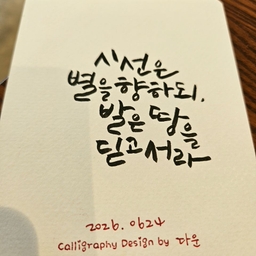 시선은
별을 향하되,
발은 땅을
딛고서라
2026. 0624
Calligraphy Design by 다운